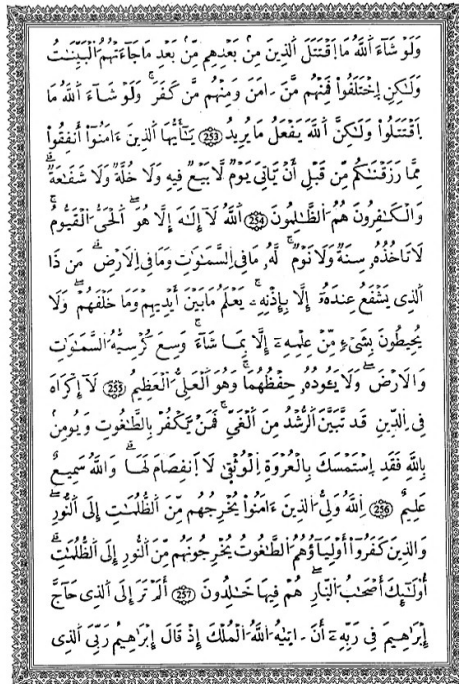 وَلَوْ شَآءَ اَ۬للَّهُ مَا اَ۪قْتَتَلَ اَ۬لذِينَ مِنۢ بَعْدِهِم مِّنۢ بَعْدِ مَا جَآءَتْهُمُ اُ۬لْبَيِّنَٰتُ
وَلَٰكِنِ اِ۪خْتَلَفُواْ فَمِنْهُم مَّنَ ـ امَنَ وَمِنْهُم مَّن كَفَرَۖ وَلَوْ شَآءَ اَ۬للَّهُ مَا
اَ۪قْتَتَلُواْ وَلَٰكِنَّ اَ۬للَّهَ يَفْعَلُ مَا يُرِيدُ 253 يَٰٓأَيُّهَا اَ۬لذِينَ ءَامَنُوٓاْ أَنفِقُواْ
مِمَّا رَزَقْنَٰكُم مِّن قَبْلِ أَنْ يَّاتِيَ يَوْمٞ لَّا بَيْعٞ فِيهِ وَلَا خُلَّةٞ وَلَا شَفَٰعَةٞۖ
وَالْكَٰفِرُونَ هُمُ اُ۬لظَّٰلِمُونَ 254 اَ۬للَّهُ لَآ إِلَٰهَ إِلَّا هُوَ اَ۬لْحَيُّ اُ۬لْقَيُّومُۖ
لَا تَاخُذُهُۥ سِنَةٞ وَلَا نَوْمٞۖ لَّهُۥ مَا فِي اِ۬لسَّمَٰوَٰتِ وَمَا فِي اِ۬لَارْضِۖ مَن ذَا
اَ۬لذِي يَشْفَعُ عِندَهُۥٓ إِلَّا بِإِذْنِهِۦۖ يَعْلَمُ مَا بَيْنَ أَيْدِيهِمْ وَمَا خَلْفَهُمْۖ وَلَا
يُحِيطُونَ بِشَےْءٖ مِّنْ عِلْمِهِۦٓ إِلَّا بِمَا شَآءَۖ وَسِعَ كُرْسِيُّهُ اُ۬لسَّمَٰوَٰتِ
وَالَارْضَۖ وَلَا يَـُٔودُهُۥ حِفْظُهُمَاۖ وَهُوَ اَ۬لْعَلِيُّ اُ۬لْعَظِيمُ 255 لَآ إِكْرَاهَ
فِي اِ۬لدِّينِ قَد تَّبَيَّنَ اَ۬لرُّشْدُ مِنَ اَ۬لْغَيِّۖ فَمَنْ يَّكْفُرْ بِالطَّٰغُوتِ وَيُومِنۢ
بِاللَّهِ فَقَدِ اِ۪سْتَمْسَكَ بِالْعُرْوَةِ اِ۬لْوُثْقَىٰ لَا اَ۪نفِصَامَ لَهَاۖ وَاللَّهُ سَمِيعٌ
عَلِيمٌۖ 256 اِ۬للَّهُ وَلِيُّ اُ۬لذِينَ ءَامَنُواْ يُخْرِجُهُم مِّنَ اَ۬لظُّلُمَٰتِ إِلَى اَ۬لنُّورِۖ
وَالذِينَ كَفَرُوٓاْ أَوْلِيَآؤُهُمُ اُ۬لطَّٰغُوتُ يُخْرِجُونَهُم مِّنَ اَ۬لنُّورِ إِلَى اَ۬لظُّلُمَٰتِۖ
أُوْلَٰٓئِكَ أَصْحَٰبُ اُ۬لنّ۪ارِۖ هُمْ فِيهَا خَٰلِدُونَ 257 أَلَمْ تَرَ إِلَى اَ۬لذِي حَآجَّ
إِبْرَٰهِيمَ فِي رَبِّهِۦٓ أَنَ ـ ات۪يٰهُ اُ۬للَّهُ اُ۬لْمُلْكَ إِذْ قَالَ إِبْرَٰهِيمُ رَبِّيَ اَ۬لذِي